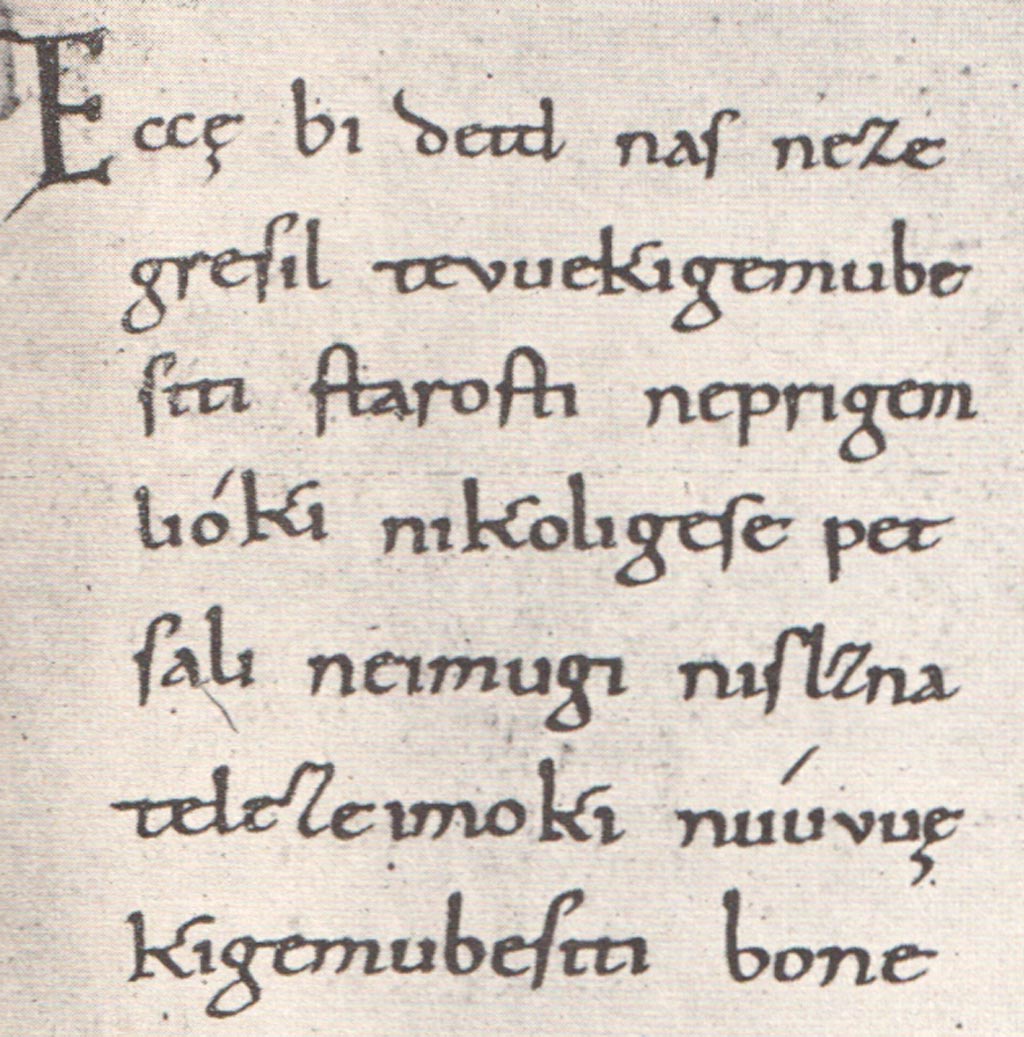 Eccę bi detd naſ neze
greſil tevuekigemube
ſiti ſtaroſti neprigem
lióki nikoligeſe pet
ſali neimugi niſlzna
teleʒeimoki nuúvuę
kigemubeſiti bone